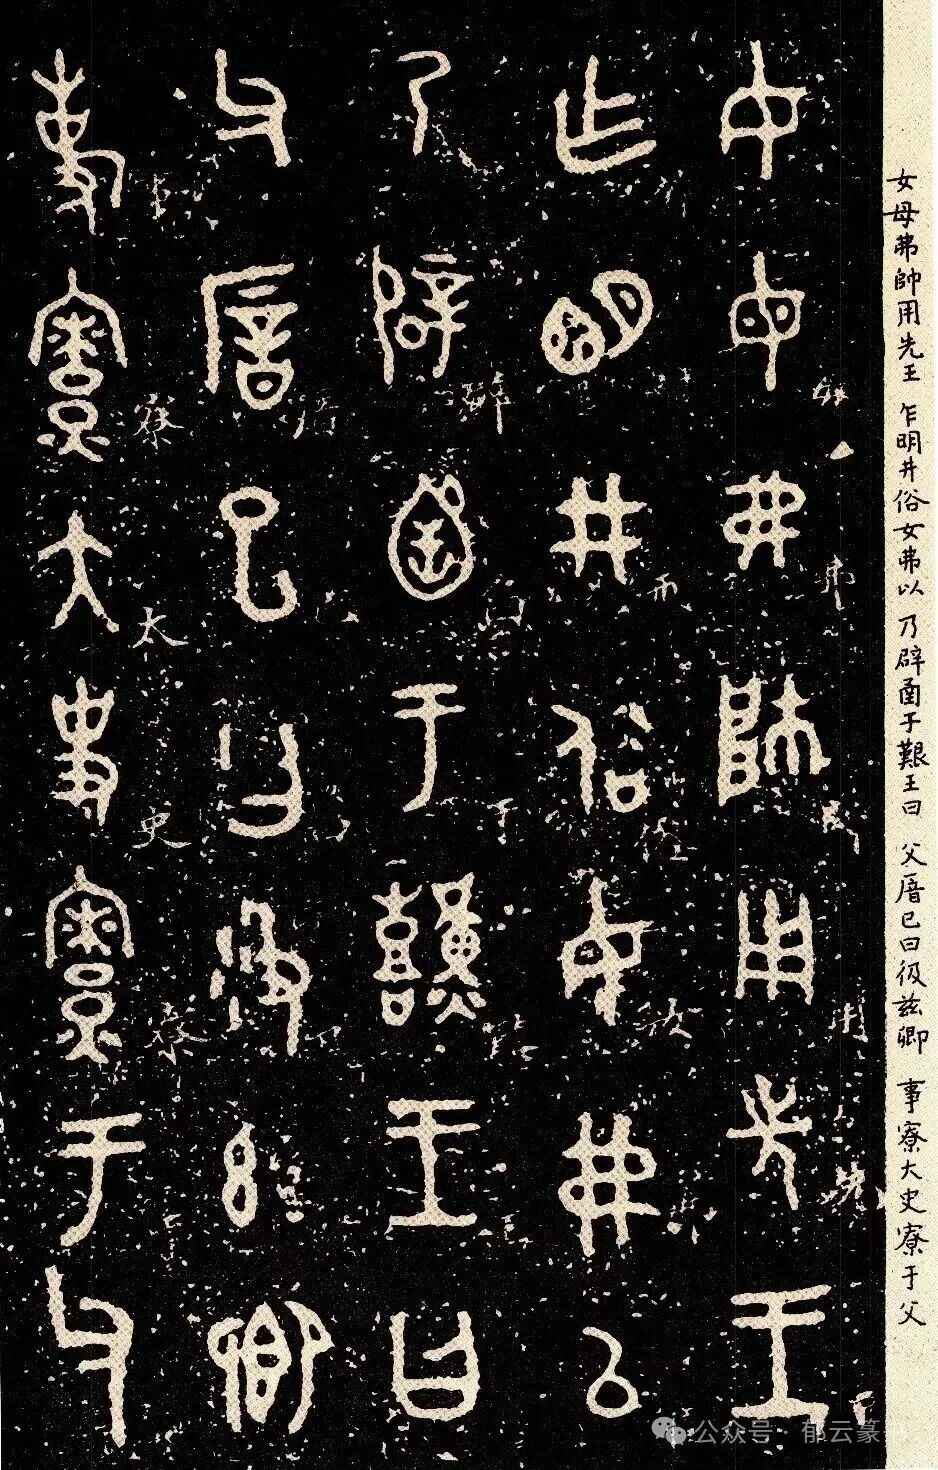 女母弗帥用先王
乍明井俗女弗以
乃辟圅于艱王曰
父㕌已曰彶茲卿
事寮大史寮于父
女母弗帥用先王 乍明井俗女弗以 乃辟圅于艱王曰 父厝已曰彶兹卿 事寮大史寮于父
公众号·郁云篆书